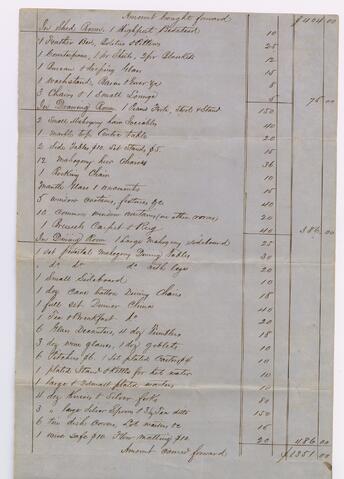 Amount brought forward $404.00
In Shed Room 1 Highpost Bedstead 10
1 Feather Bed, Bolster & Pillows 25
1 Counterpane, 1 pr Sheets, 2 pr Blankets 12
1 Bureau & Glass 15
1 Washstand, & 5
3 Chairs & 1 Small Lounge 8 75.00
In Drawing Room 1 Piano Forte, Stool & Stand 150
2 Small Mahogany hair 40
1 marble top Centre table 20
2 Side Tables $10. Set Stands, $5. 15
12 Mahogany hair Chairs 36
1 Rocking Chair 10
Mantle Glass & ornaments 15
5 window curtains, fixtures, &c 40
10 common window curtains (in other rooms) 20
1 Brussels Carpet & Rug 40 386.00
In Dining Room 1 Large Mahogany Sideboard 25
1 set pedestal Mahogany Dining Tables 30
1 do do do with legs 20
1 Small Sideboard 10
1 doz cane bottom Dining Chairs 18
1 full set Dinner China 40
1 Tea & Breakfast do 20
6 Glass Decanters, 4 doz Tumblers 18
3 doz wine glasses, 1 doz goblets 10
6 Pitchers $6. 1 Set plated Castors $4 10
1 plated Stand & Kettle for hot water 10
1 large & 2 small plated waiters 10
4 doz Knives & Silver forks 80
3 " large Silver Spoons & 150
6 tin dish covers, Set waiters &c 15
1 wine safe $10. Floor matting $10. 20 486.00
Amount carried forward $1351.00